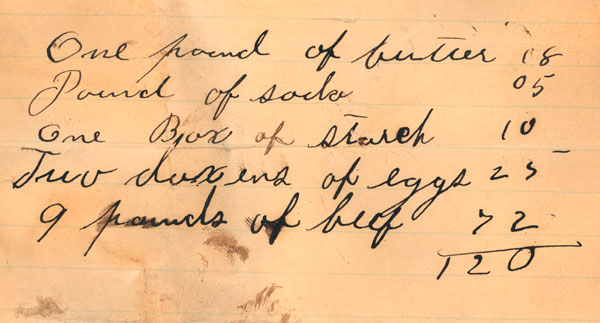 One pound of butter 08
Pound of soda 05
One Box of starch 10
Two doxens of eggs 25
9 pounds of beef 72
120